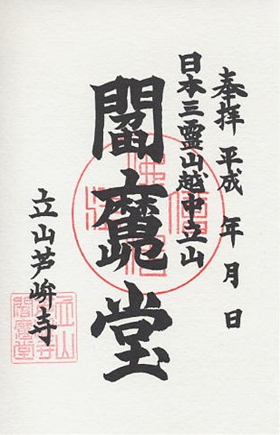 奉拝 平成 年 月 日
日本三霊山越中立山
閻魔堂
立山芦峅寺